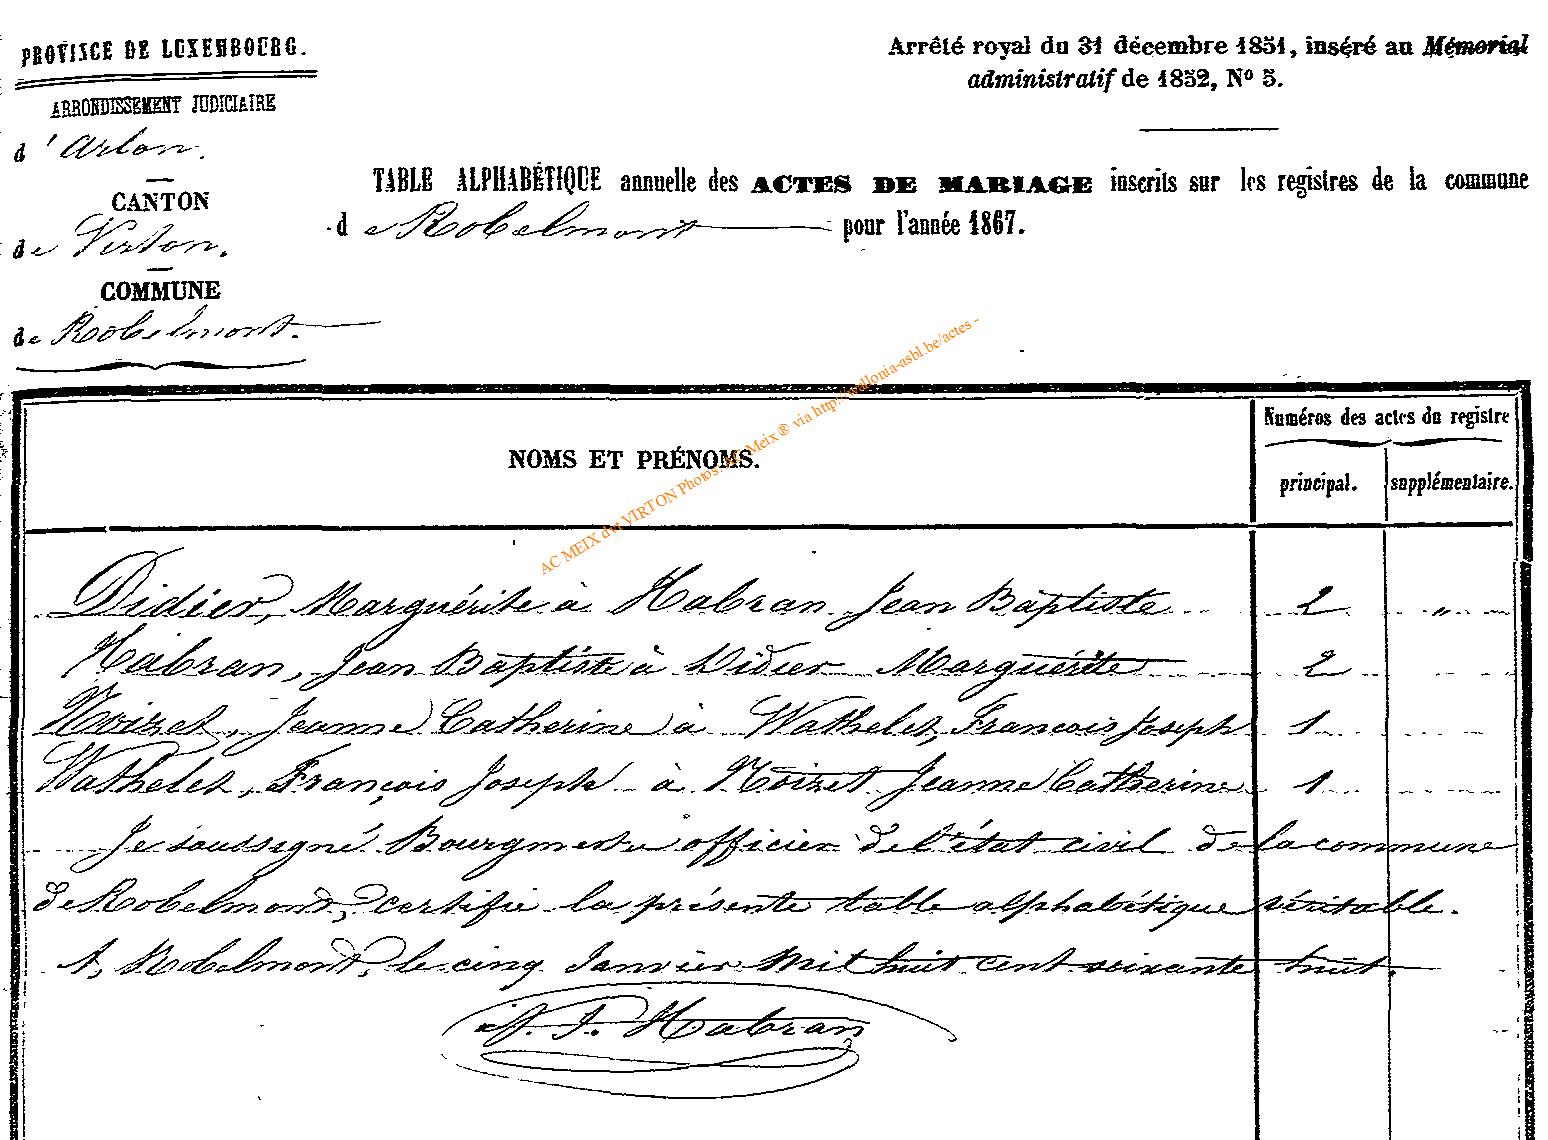 PROVINCE DE LUXEMBOURG.
ARRONDISSEMENT JUDICIAIRE
d'Arlon.
CANTON
de Virton.
COMMUNE
de Robelmont.
Arrêté royal du 31 décembre 1851, inséré au Mémorial
administratif de 1852, Nº 5.
TABLE ALPHABÉTIQUE annuelle des ACTES DE MARIAGE inscrits sur les registres de la commune
de Robelmont pour l'année 1867.
NOMS ET PRÉNOMS.
Numéros des actes du registre
principal. supplémentaire.
Didier, Marguérite à Habran Jean Baptiste 2 "
Habran, Jean Baptiste à Didier Marguérite 2
Noizet, Jeanne Catherine à Wathelet, François Joseph 1
Wathelet, François Joseph à Noizet Jeanne Catherine 1
Je soussigné Bourgmestre officier de l'état civil de la commune
de Robelmont, certifie la présente table alphabétique véritable.
A, Robelmont, le cinq Janvier mil huit cent soixante huit.
J. Habran
AC MEIX dvt VIRTON Photos AC Meix ® via http://wallonia-asbl.be/actes -